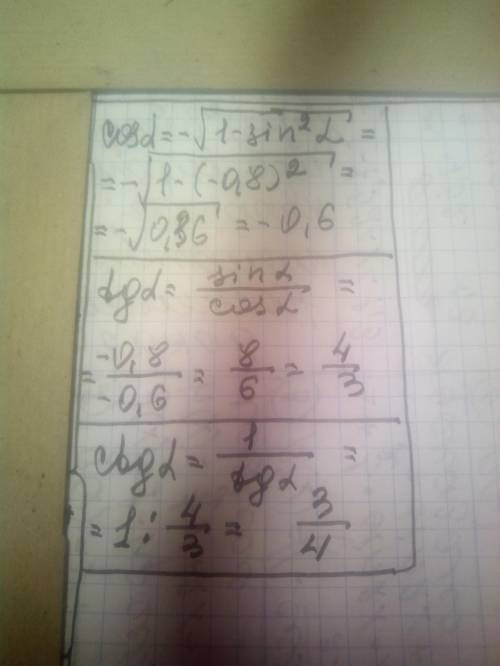 cosα = -√(1-sin²α) =
= -√(1-(-0,8)²) =
= -√(0,36) = -0,6
tgα = sinα/cosα =
= -0,8/-0,6 = 8/6 = 4/3
ctgα = 1/tgα =
= 1 : 4/3 = 3/4